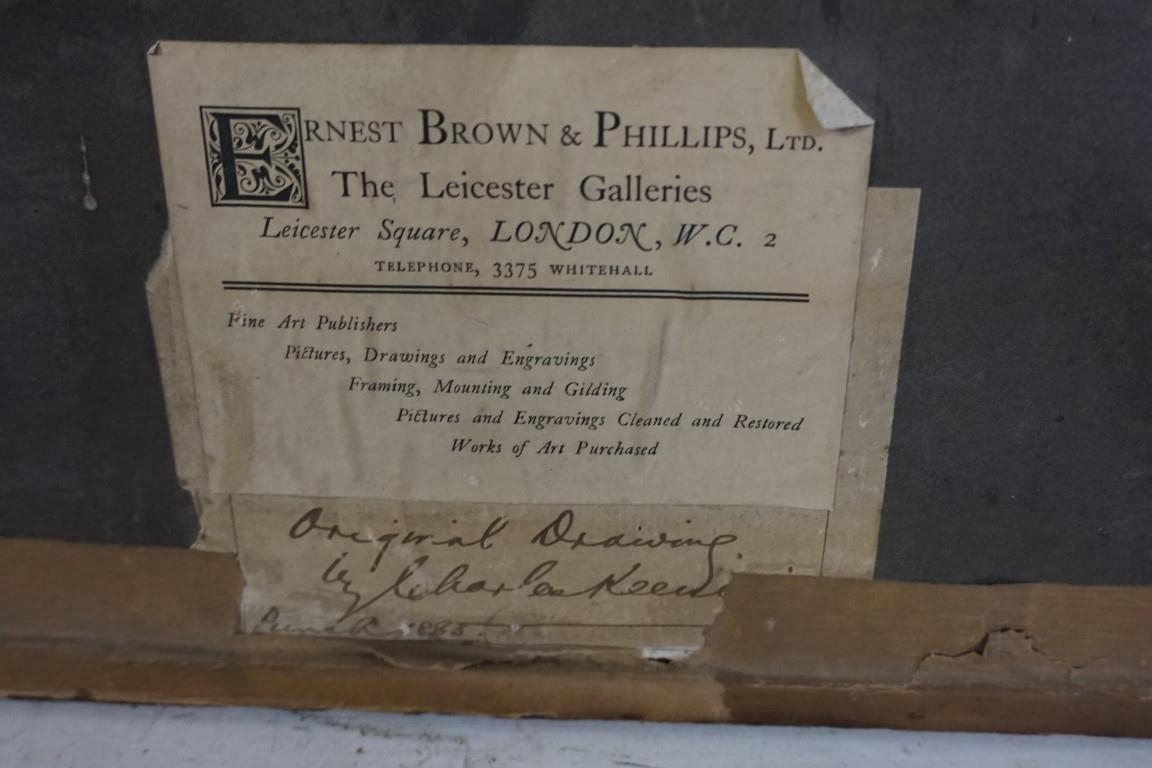 ERNEST BROWN & PHILLIPS, LTD.
The Leicester Galleries
Leicester Square, LONDON, W.C. 2
TELEPHONE, 3375 WHITEHALL
Fine Art Publishers
Pictures, Drawings and Engravings
Framing, Mounting and Gilding
Pictures and Engravings Cleaned and Restored
Works of Art Purchased
Original Drawing
by Charles Keene